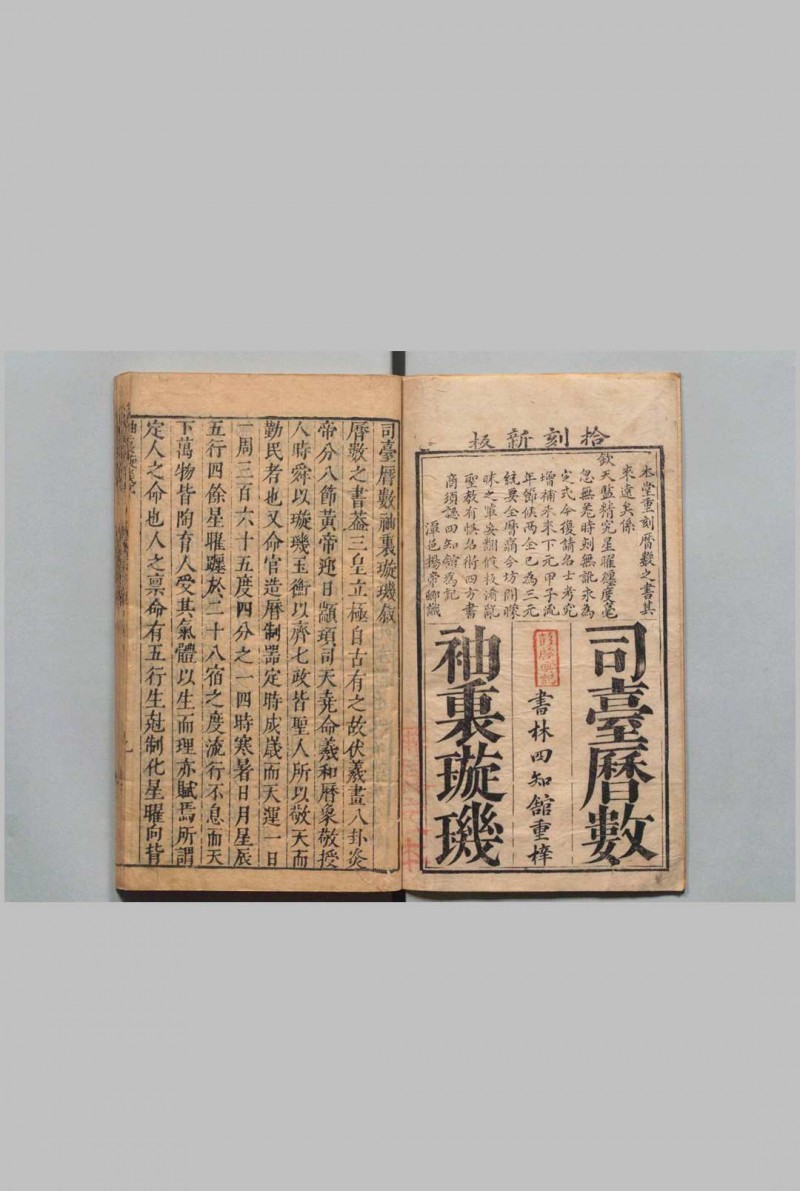 拾刻新板
本堂重刻曆數之書其
來遠矣係
欽天監精究星曜纏度毫
忽無差時刻無訛永為
定式今復請名士考究
增補未來下元甲子流
年節候两全已為三元
統要全曆爾今坊間矇
昧之軰妄翻假投淆亂
聖教有悞名術四方書
商須認四知舘為記
潭邑楊帝卿識
司臺曆數
書林四知舘重梓
袖裏璇璣
司臺曆數袖裏璇璣叙
曆數之書葢三皇立極自古有之故伏羲畫八卦炎
帝分八節黃帝迎日顓頊司天堯命羲和曆象敬授
人時舜以璇璣玉衡以齊七政皆聖人所以敬天而
勤民者也又命官造曆制器定時成歲而天運一日
一周三百六十五度四分之一四時寒暑日月星辰
五行四餘星曜躔於二十八宿之度流行不息而天
下萬物皆陶育人受其氣體以生而理亦賦焉所謂
定人之命也人之禀命有五行生尅制化星曜向背